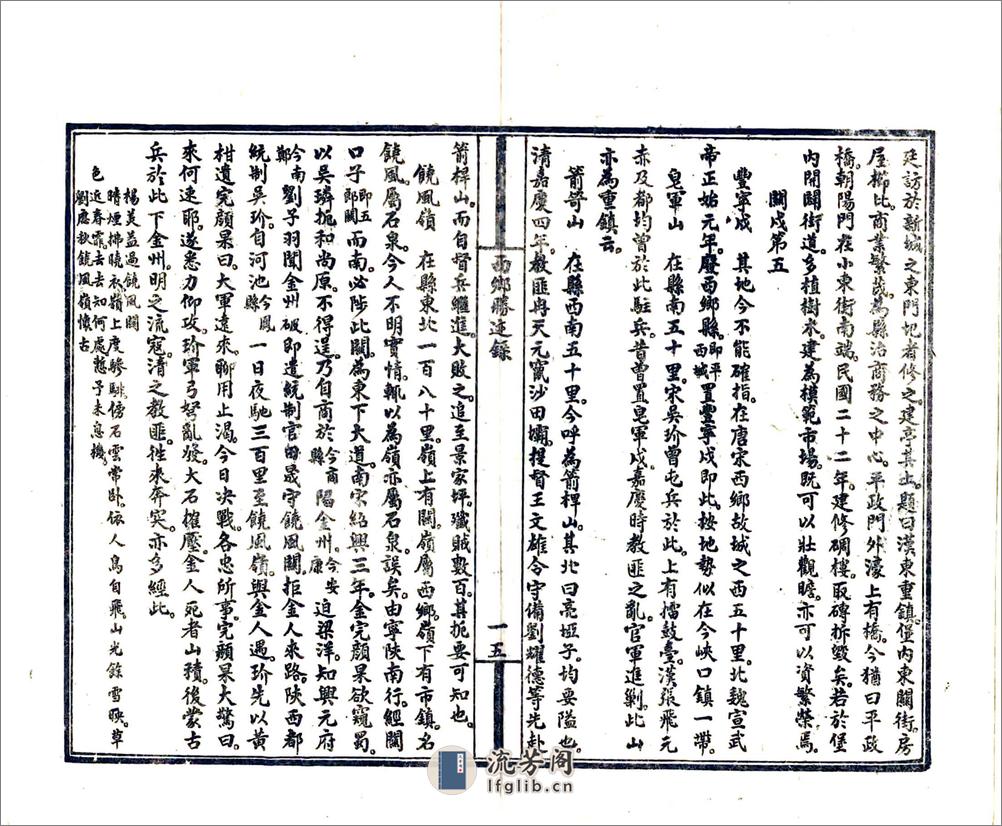 廷訪於新城之東門圯者修之建亭其上題曰漢東重鎮堡內東關街房
屋櫛比商業繁茂為縣治商務之中心平政門外濠上有橋今猶曰平政
橋朝陽門在小東街南端民國二十二年建修碉樓取磚拆毀矣若於堡
內開闢街道多植樹木建為模範市場既可以壯觀瞻亦可以資繁榮焉
關戍第五
豐寧戍 其地今不能確指在唐宋西鄉故城之西五十里北魏宣武
帝正始元年廢西鄉縣即平西城置豐寧戍即此按地勢似在今峽口鎮一帶
皂軍山 在縣南五十里宋吳玠曾屯兵於此上有擂鼓臺漢張飛元
赤及都均曾於此駐兵昔曾置皂軍戍嘉慶時教匪之亂官軍進剿此山
亦為重鎮云
箭笴山 在縣西南五十里今呼為箭桿山其北曰亮埡子均要隘也
清嘉慶四年教匪冉天元竄沙田壩提督王文雄令守備劉耀德等先赴
西鄉勝迹錄
一五
箭桿山而自督兵繼進大敗之追至景家坪殲賊數百其扼要可知也
饒風嶺 在縣東北一百八十里嶺上有關嶺屬西鄉嶺下有市鎮名
饒風屬石泉今人不明實情輒以為嶺亦屬石泉誤矣由寧陝南行經關
口子即五郎關而南必陟此關為東下大道南宋紹興三年金完顏杲欲窺蜀
以吳璘扼和尚原不得逞乃自商於今商縣陷金州今安康迫梁洋知興元府
今南鄭劉子羽聞金州破即遣統制官田晟守饒風關拒金人來路陝西都
統制吳玠自河池今鳳縣一日夜馳三百里至饒風嶺與金人遇玠先以黃
柑遺完顏杲曰大軍遠來聊用止渴今日決戰各忠所事完顏杲大驚曰
來何速耶遂悉力仰攻玠軍弓弩亂發大石摧壓金人死者山積後蒙古
兵於此下金州明之流寇清之教匪往來奔突亦多經此
楊美益過饒風關
晴煙拂曉衣嶺上度驂騑傍石雲常臥依人鳥自飛山光餘雪映草
色近春霏去去知何處愁予未息機
劉應秋饒風嶺懷古
流芳阁
lfglib.cn